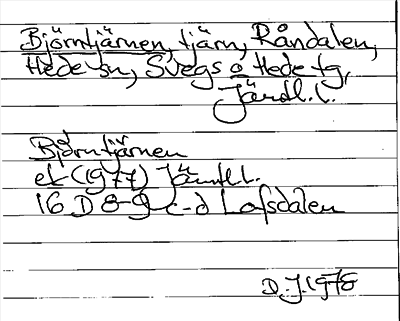 Björntjärnen, tjärn,Råndalen,
Hede sn, Svegs o Hede tg,
Jämtl. l.
Björntjärnen
ek (1977) Jämtl l.
16 D 8-9 c-d Lofsdalen
D.J. 1978